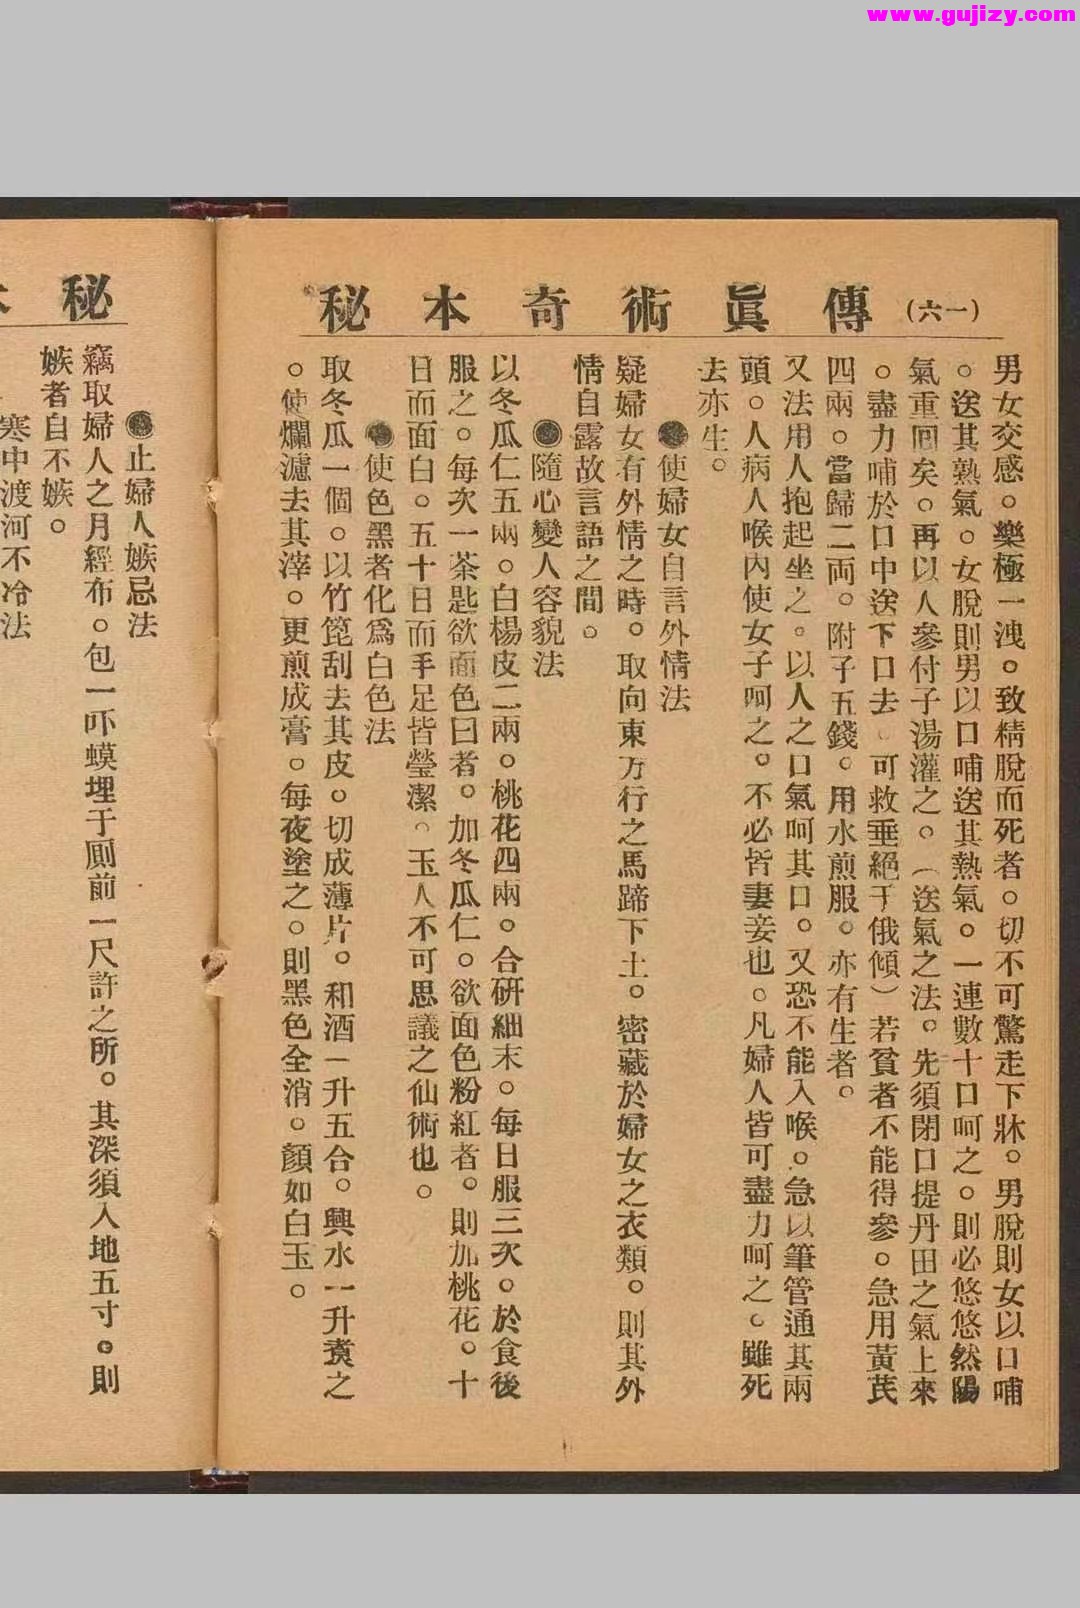 www.gujizy.com
傳眞術奇本秘
(一六)
男女交感。樂極一洩。致精脫而死者。切不可驚走下牀。男脫則女以口哺
。送其熟氣。女脫則男以口哺送其熱氣。一連數十口呵之。則必悠悠然陽
氣重回矣。再以人參付子湯灌之。(送氣之法。先須閉口提丹田之氣上來
。盡力哺於口中送下口去。可救垂絕于俄傾)若貧者不能得參。急用黃芪
四兩。當歸二両。附子五錢。用水煎服。亦有生者。
又法用人抱起坐之。以人之口氣呵其口。又恐不能入喉。急以筆管通其兩
頭。人病人喉內使女子呵之。不必皆妻妾也。凡婦人皆可盡力呵之。雖死
去亦生。
使婦女自言外情法
疑婦女有外情之時。取向東方行之馬蹄下土。密藏於婦女之衣類。則其外
情自露故言語之間。
隨心變人容貌法
以冬瓜仁五兩。白楊皮二兩。桃花四兩。合研細末。每日服三次。於食後
服之。每次一茶匙欲面色曰者。加冬瓜仁。欲面色粉紅者。則加桃花。十
日而面白。五十日而手足皆瑩潔。玉人不可思議之仙術也。
使色黑者化爲白色法
取冬瓜一個。以竹箆刮去其皮。切成薄片。和酒一升五合。興水一升煑之
。使爛濾去其滓。更煎成膏。每夜塗之。則黑色全消。顏如白玉。
秘本
止婦人嫉忌法
竊取婦人之月經布。包一吓蟆埋于厠前一尺許之所。其深須入地五寸。則
嫉者自不嫉。
寒中渡河不冷法